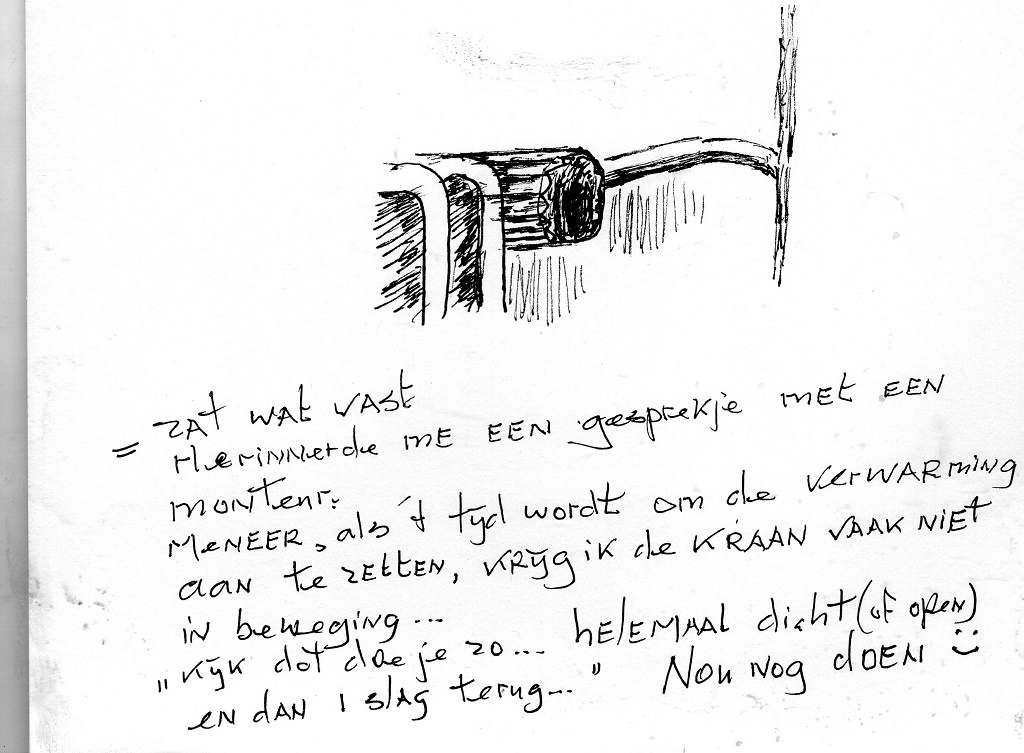 = zat wat vast
Herinnerde me EEN gesprekje met EEN
monteur.
MENEER, als 't tijd wordt om de verwarming
aan te zetten, krijg ik de KRAAN VAAK NIET
in beweging...
"Kijk dat doe je zo... helemaal dicht (of open)
en dan 1 slag terug..." Nou nog doen :)